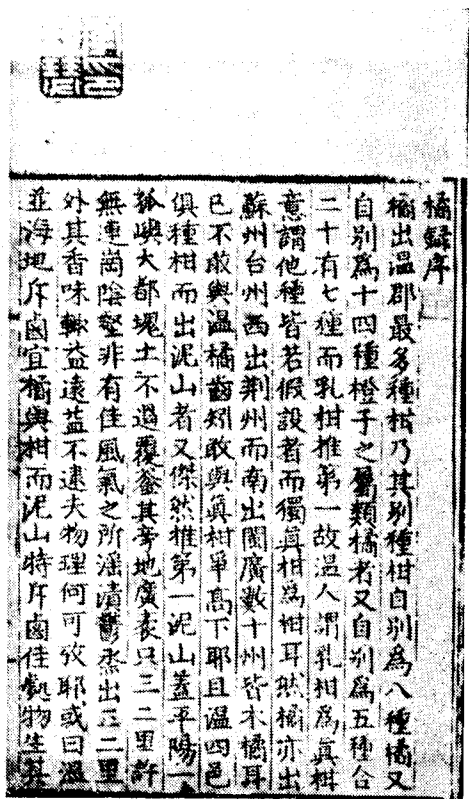 橘録序
橘出温郡最多種柑乃其别種柑自别爲八種橘又
自别爲十四種橙子之屬類橘者又自别爲五種合
二十有七種而乳柑推第一故温人謂乳柑爲真柑
意謂他種皆若假設者而獨真柑爲柑耳然橘亦出
蘇州台州西出荆州而南出閩廣數十州皆木橘耳
已不敢與温橘齒矧敢與真柑爭高下耶且温四邑
俱種柑而出泥山者又傑然推第一泥山蓋平陽一
孤嶼大都塊土不過覆釜其旁地廣袤只三二里許
無連岡陰壑非有佳風氣之所淫漬鬱烝出三二里
外其香味輒益遠益不逮夫物理何可攷耶或曰温
並海地斥鹵宜橘與柑而泥山特斥鹵佳處物生其